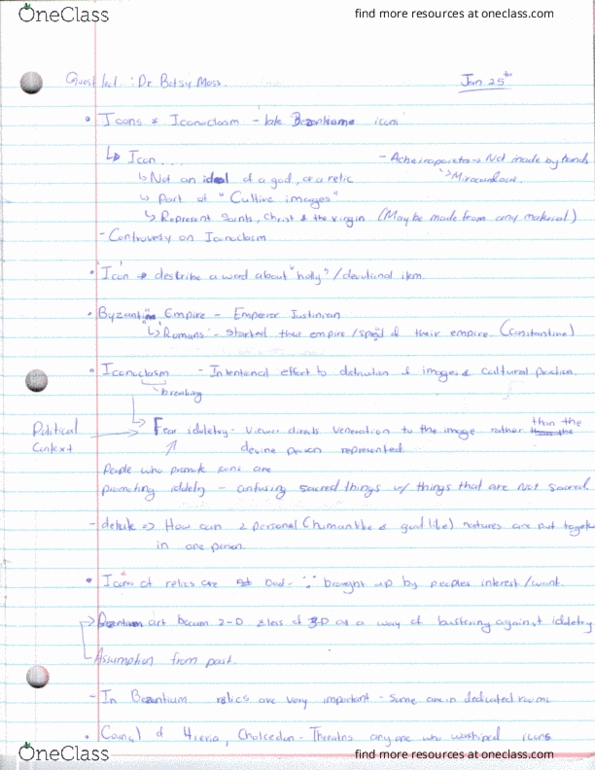 OneClass
find more resources at oneclass.com
Guest lect : Dr Betsy Moss.
Jan 25th
• Icons & Iconoclasm - late icon
↳ Icon ...
- Acheiropoieta → Not made by hands
↳ Not an idol of a god, or a relic
↳ Miraculous
↳ Part of "Cultive images"
↳ Represent Saints, Christ & the virgin (Maybe made from any material)
- Controversy on Iconoclasm
• 'Icon' → describe a word about "holly"/devotional item.
• Byzantine Empire - Emperor Justinian
↳ "Romans" - Started their empire/ of their empire. (Constantine)
• Iconoclasm - Intentional effort to distruction of images & cultural
↳ breaking
Political Context
→ Fear idoletry - Viewer directs veneration to the image rather than the
devine person represented
People who promote icons are
promoting idolety - confusing sacred things w/ things that are not sacred.
- debate => How can 2 personal (humanlike & godlike) natures are put togeth
in one person.
• Icons of relics are - ∵ brought up by peoples interest/want.
art becum 2-D of 3-D as a way of against idoletry
Assumption from past.
- In Bzantium relics are very important - Some are in dedicated rooms
• Council of Hieria, Chalcedon - Threatns anyone who worshiped icons
OneClass
find more resources at oneclass.com